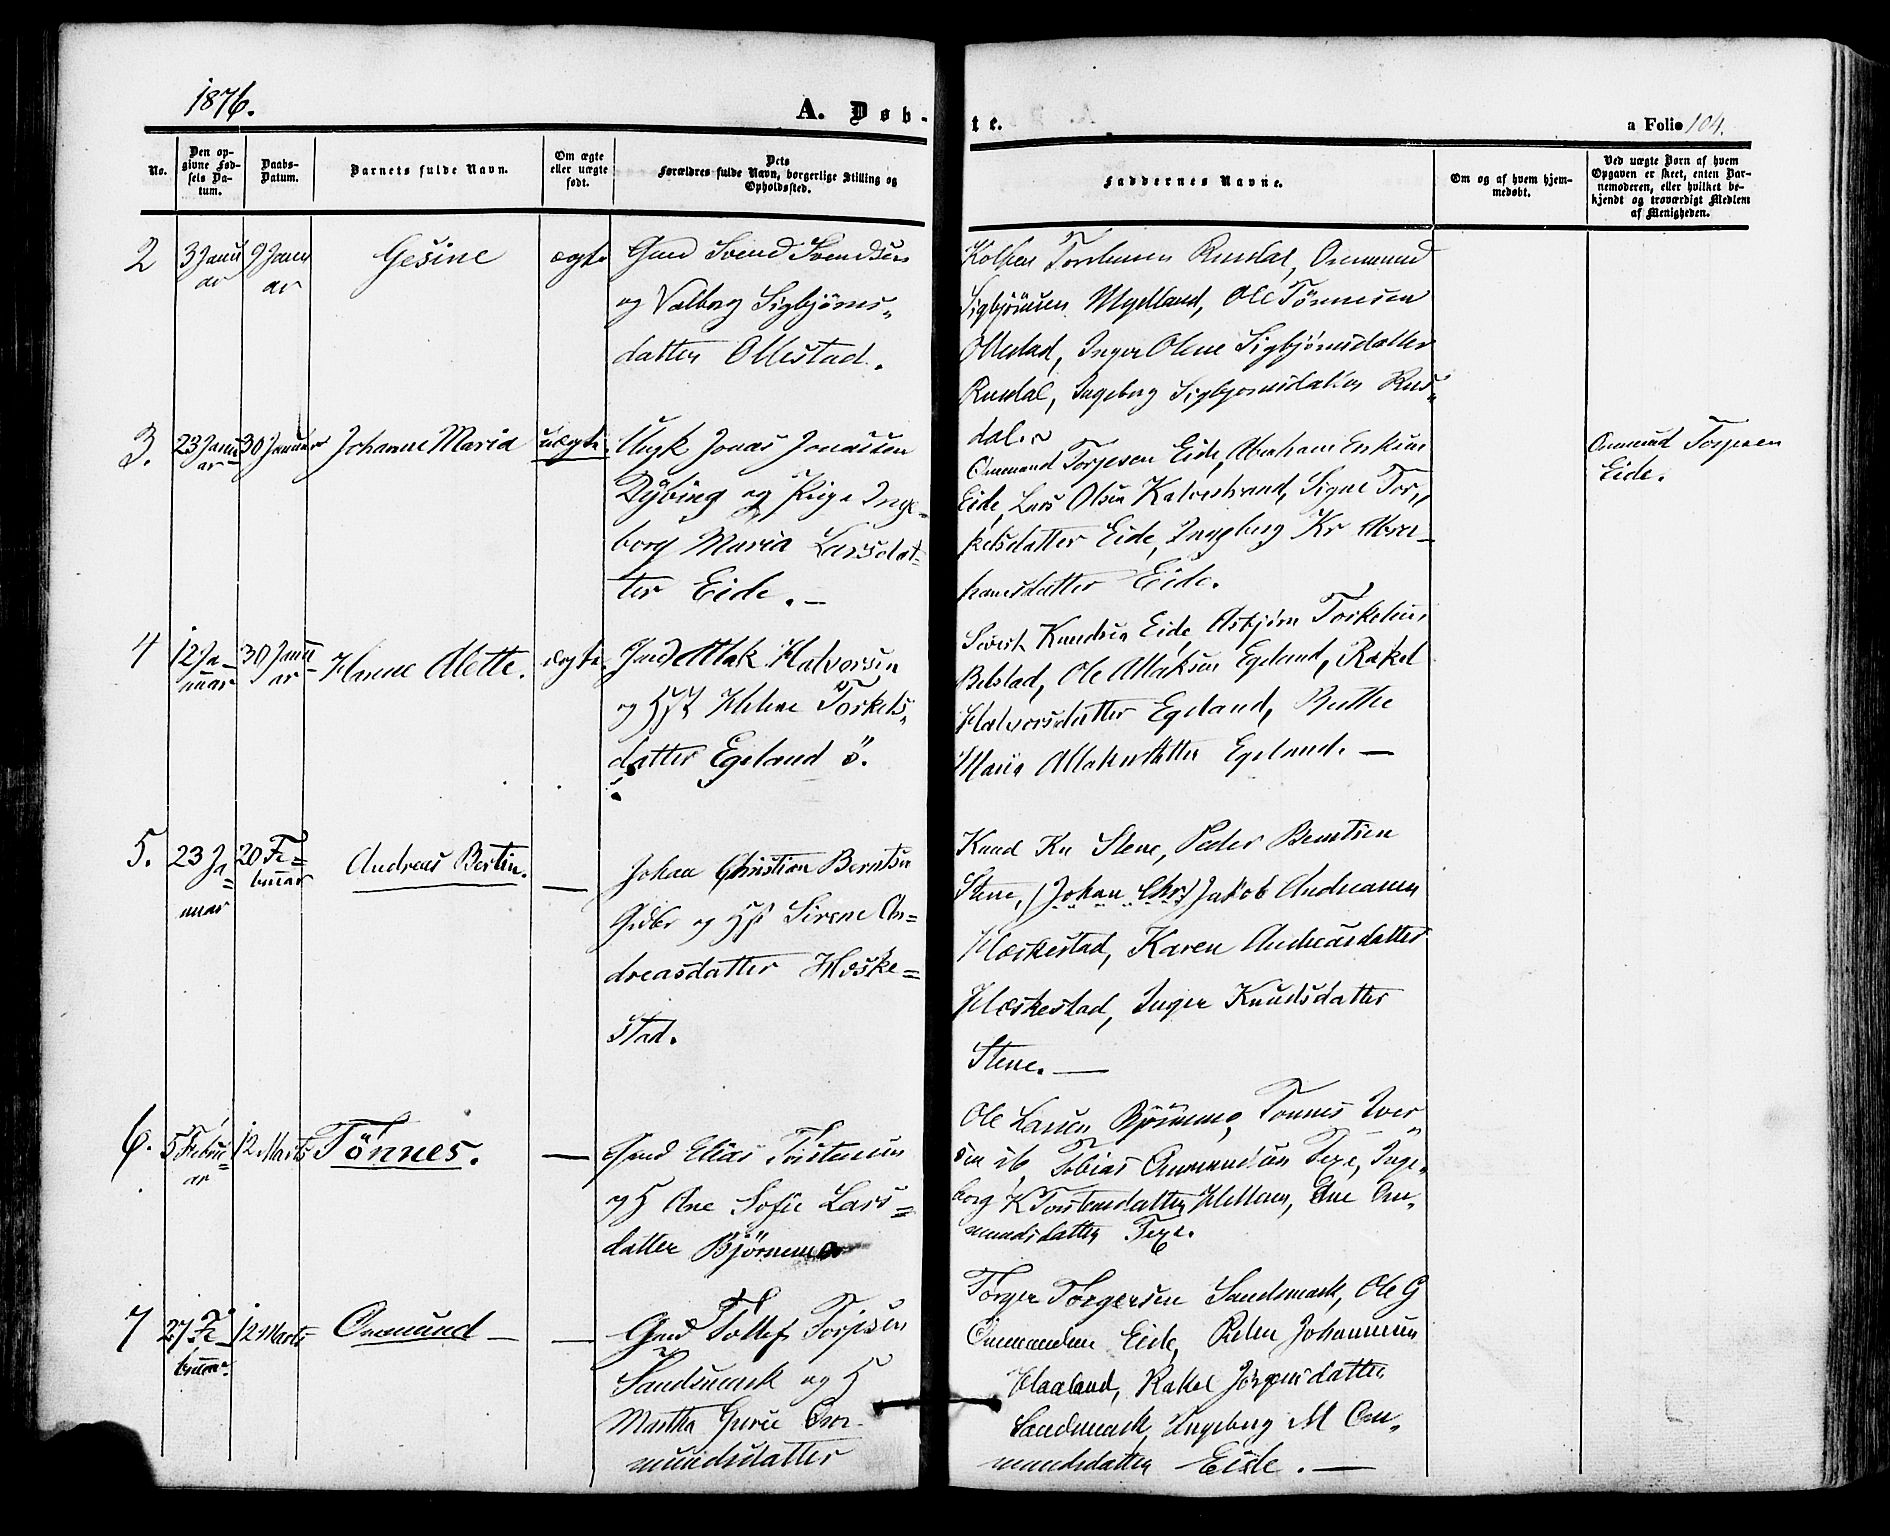 1876.
A. Døb-
te.
a Folio 104.
No.
Den op-
givne Fød-
sels Da-
tum.
Daabs-
Datum.
Barnets fulde Navn.
Om ægte
eller uægte
født.
Dets
Forældres fulde Navn, borgerlige Stilling og
Opholdssted.
Faddernes Navne.
Om og af hvem hjem-
medøbt.
Ved uægte Børn af hvem
Opgaven er skeet, enten Bar-
nemoderen, eller hvilket be-
kjendt og troværdigt Medlem
af Menigheden.
2
3 Janu
ar
9 Janu
ar
Gesine
ægte
Gmd Svend Svendsen
og Valborg Sigbjørns-
datter Ollestad.
Torkelsen Rusdal, Ommund
Sigbjørnsen Mydland, Ole Tönnesen
Ollestad, Inger Oline Sigbjørnsdatter
Rusdal, Ingeborg Sigbjørnsdatter Rus-
dal
3.
23 Janu
ar
30 Januar
Johanne Maria
uægte.
Ungk Jonas Jonassen
Dybing og Pige Inge-
borg Maria Larsdat-
ter Eide.
Ommund Torjesen Eide, Abraham Eriksen
Eide, Lars Olsen Kalvestrand, Signe Tor-
kelsdatter Eide, Ingeborg Kr Abra-
hamsdatter Eide.
Ommund Torjesen
Eide.
4
12 Ja-
nuar
30 Janu-
ar
Hanne Mette.
ægte.
Gmd Atlak Halvorsen
og Hst Helene Torkels-
datter Egeland ö.
Sivert Knudsen Eide, Asbjørn Torkelsen
Belstad, Ole Atlaksen Egeland, Rakel
Halvorsdatter Egeland,
Maria Atlaksdatter Egeland.
5.
23 Ja-
nuar
20 Fe-
bruar
Andreas Bertin.
Johan Christian Berntsen
Gdbr og Hst Sirene An-
dreasdatter Heske-
stad.
Knud Kn Stene, Peder Berntsen
Stene, (Johan Chr) Jakob Andreasen
Heskestad, Karen Andreasdatter
Heskestad, Inger Knudsdatter
Stene.
6.
5 Febru-
ar
12 Marts
Tönnes.
Gmd Elias Torstensen
og H Ane Sofie Lars-
datter Björnemo
Ole Larsen Björnemo, Tonnes Iver-
sen ib, Tobias Ommundsen Texe, Inge-
borg K Torstensdatter Helland, Ane Om-
mundsdatter Texe.
7
27 Fe-
bruar
12 Marts
Ommund
Gmd Tollef Torjesen
Sandsmark og H
Martha Gurie Om-
mundsdatter
Torger Torgersen Sandsmark, Ole G
Ommundsen Eide, Peder Johannesen
Haaland, Rakel Jörgensdatter
Sandsmark, Ingeborg M Om-
mundsdatter Eide.